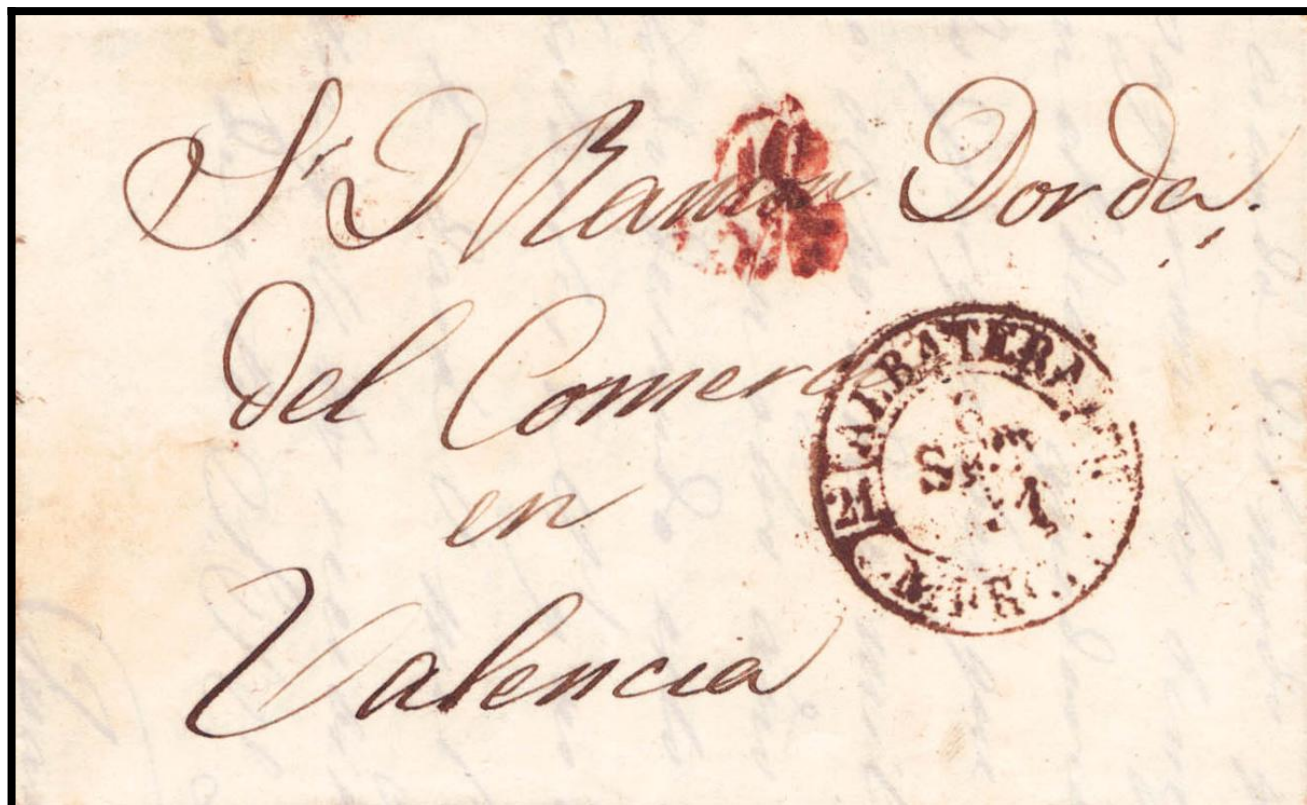 Sr D Ramon Dorda,
del Comercio
en
Valencia
ALBATERA
21
8